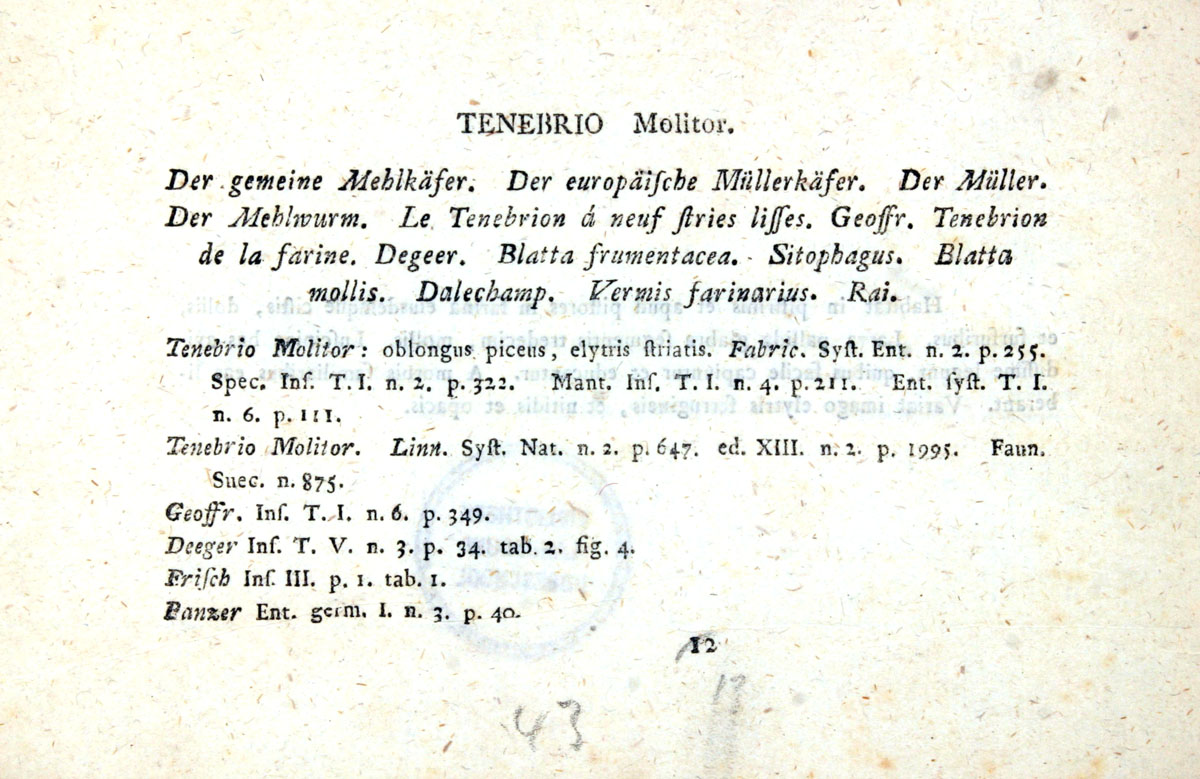 TENEBRIO Molitor.
Der gemeine Mehlkäfer. Der europäiſche Müllerkäfer. Der Müller.
Der Mehlwurm. Le Tenebrion á neuf ſtries liſſes. Geoffr. Tenebrion
de la farine. Degeer. Blatta frumentacea. Sitophagus. Blatta
mollis. Dalechamp. Vermis farinarius. Rai.
Tenebrio Molitor: oblongus piceus, elytris ſtriatis. Fabric. Syſt. Ent. n. 2. p. 255.
Spec. Inſ. T. I. n. 2. p. 322. Mant. Inſ. T. I. n. 4. p. 211. Ent. ſyſt. T. I.
n. 6. p. 111.
Tenebrio Molitor. Linn. Syſt. Nat. n. 2. p. 647. ed. XIII. n. 2. p. 1995. Faun.
Suec. n. 875.
Geoffr. Inſ. T. I. n. 6. p. 349.
Deeger Inſ. T. V. n. 3. p. 34. tab. 2. fig. 4.
Friſch Inſ. III. p. 1. tab. 1.
Panzer Ent. germ. I. n. 3. p. 40.
12
43